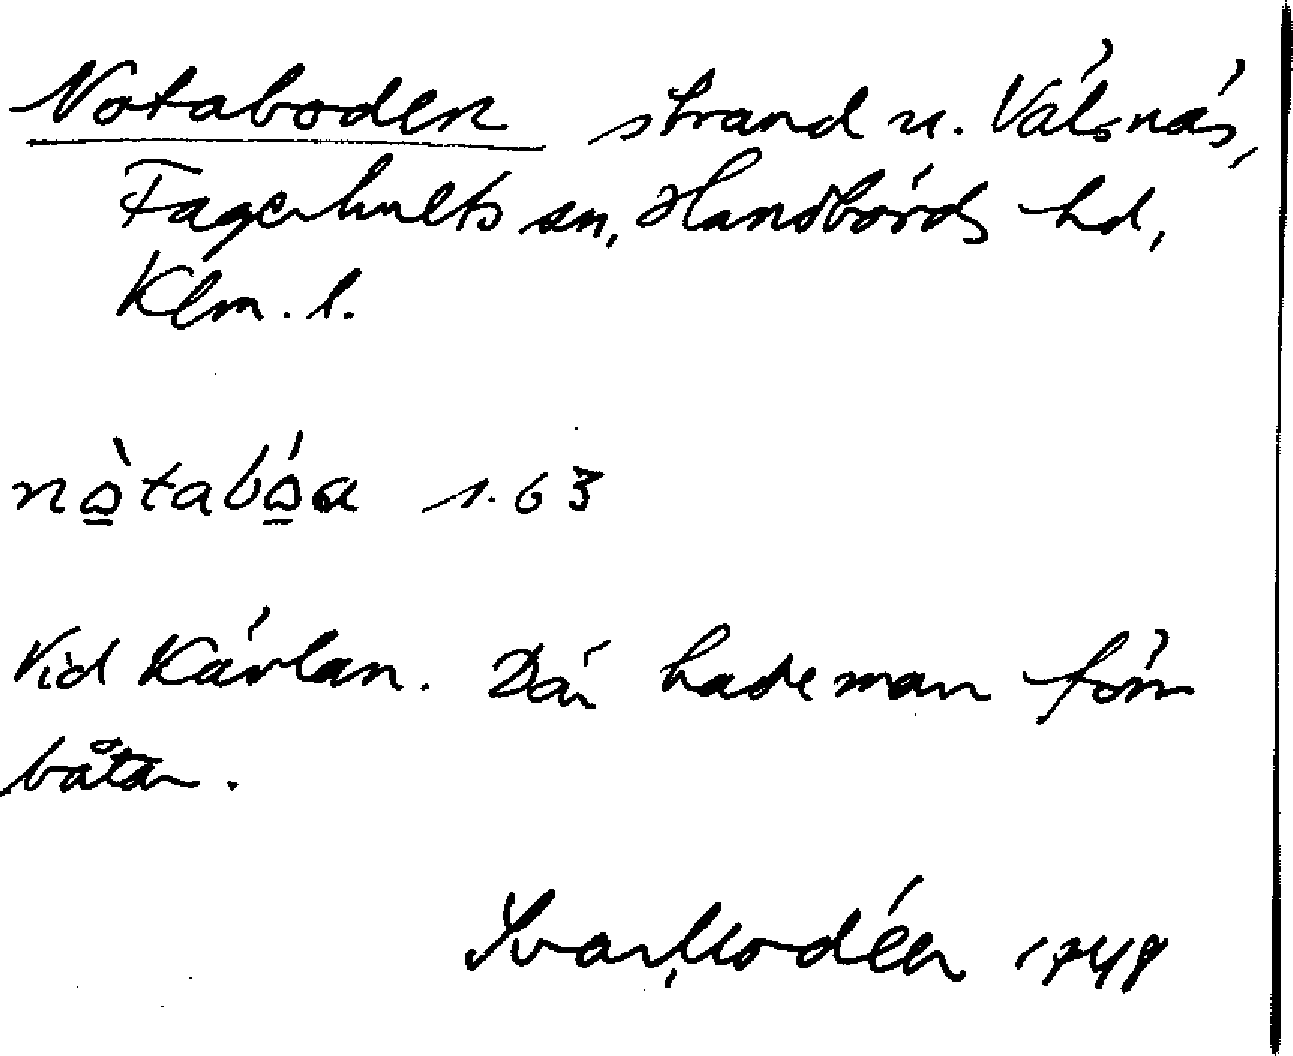 Notaboden strand u. Välsnäs,
Fagerhults sn, Handbörds hd,
Klm. l.
nò̲tabó̲a s. 63
Vid Kärlan. Där hade man förr
båtar.
Ivar Modéer 1948